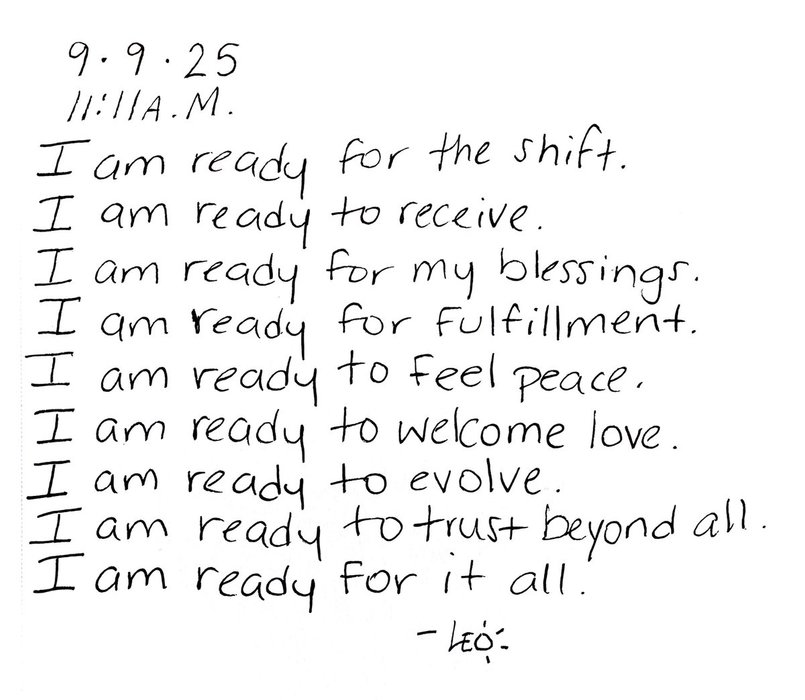 9.9.25
11:11A.M.
I am ready for the shift.
I am ready to receive.
I am ready for my blessings.
I am ready for fulfillment.
I am ready to feel peace.
I am ready to welcome love.
I am ready to evolve.
I am ready to trust beyond all.
I am ready for it all.
- LEO